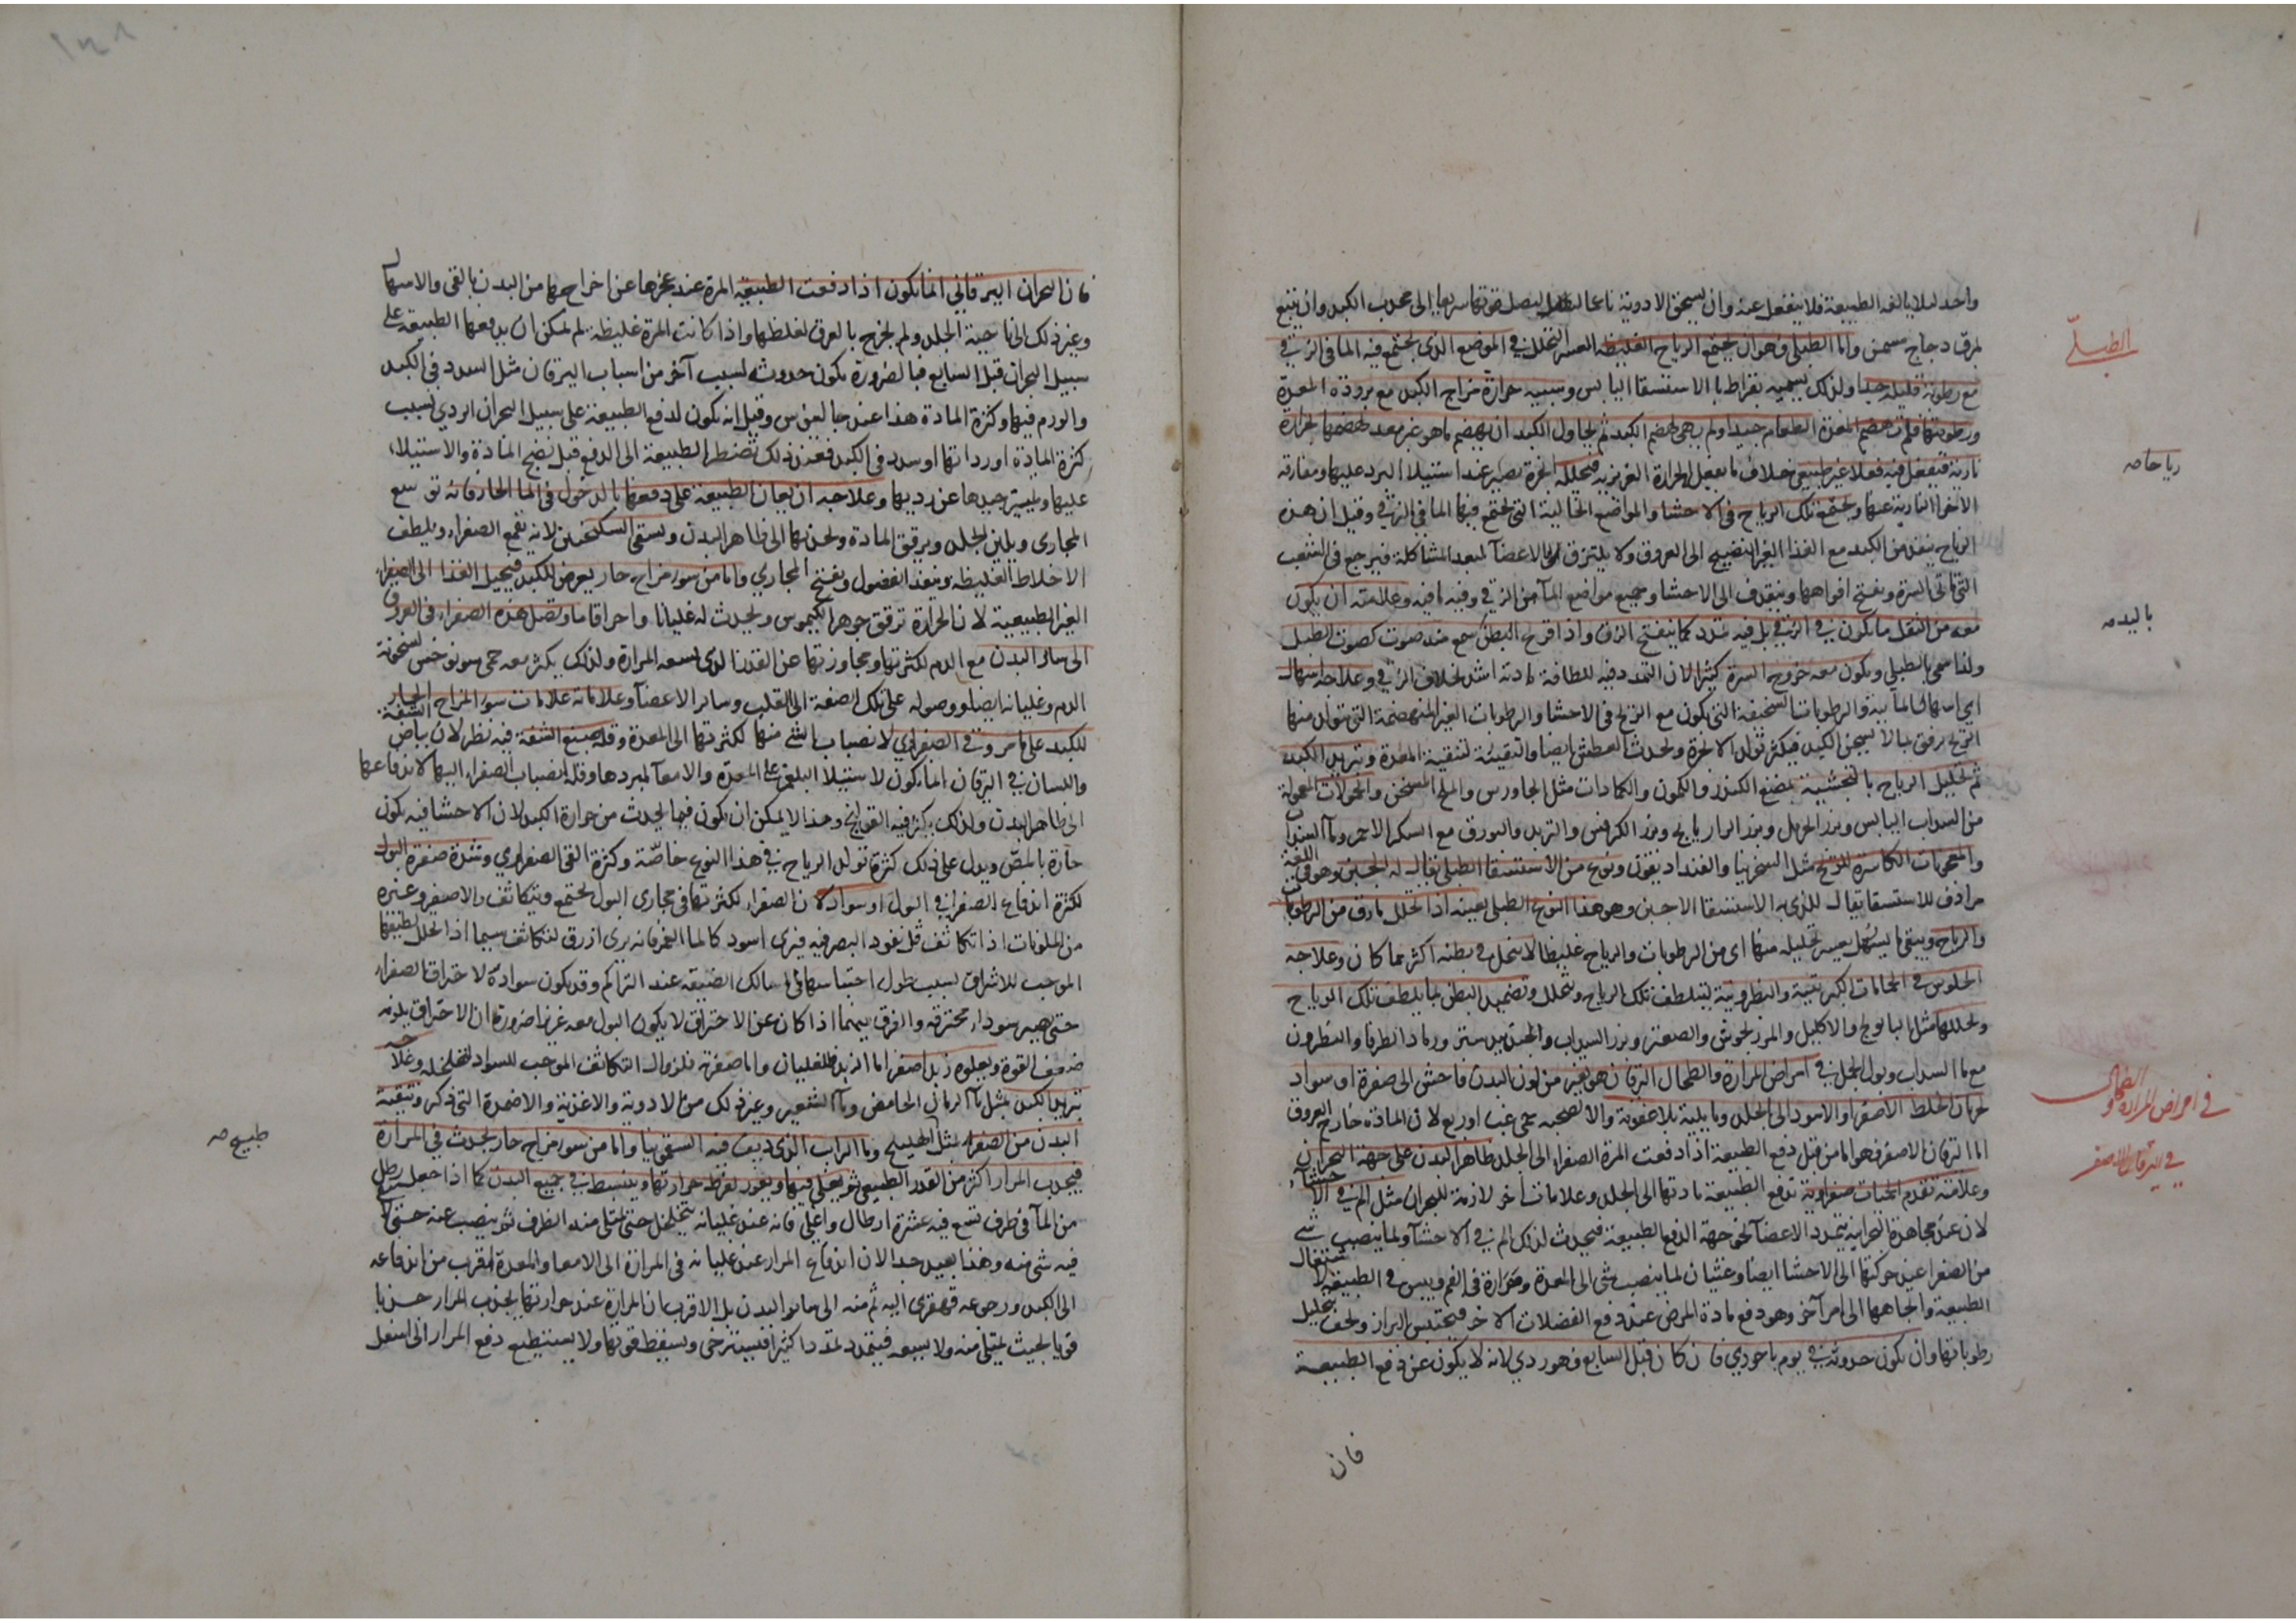 واحد لئلا يالفه الطبيعة فلا ينفعل عنه وان يسحق الادوية ناعما ليصل قوتها سريعا الى محدب الكبد وان يتبع
بمرق دجاج مسمن واما الطبلى فهو ان يجتمع الرياح الغليظة العسرة التحلل في الموضع الذى يجتمع فيه الماء في الزقي
مع رطوبة قليلة جدا ولذلك يسميه بقراط بالاستسقا اليابس وسببه حرارة مزاج الكبد مع برودة المعدة
ورطوبتها فلم تهضم المعدة الطعام جيدا ولم يهيى لهضم الكبد ثم يحاول الكبد ان يهضم ما هو غير معد لهضمها بحرارة
نارية فيفعل فيه فعلا غير طبيعى خلاف ما يفعل الحرارة الغريزية فتحلله ابخرة تصير عند استيلاء البرد عليها ومفارقة
الاجزا النارية عنها ويجتمع تلك الرياح في الاحشا والمواضع الخالية التي يجتمع فيها الماء في الزقي وقيل ان هذه
الرياح ينفذ من الكبد مع الغذا الغير النضيج الى العروق ولا يلتزق بالاعضاء لبعد المشاكلة فيرجع فى الشعب
التي تاتى السرة ويفتح افواهها وينقذف الى الاحشا وجميع مواضع الماء من الزقي وفيه ما فيه وعلامته ان لا يكون
معه من الثقل ما يكون في الزقي بل فيه تمدد كما ينفتح الزق واذا قرع البطن سمع منه صوت كصوت الطبل
ولهذا سمى بالطبلي ويكون معه خروج السرة كثيرا لان التمدد فيه للطافة مادته اشد بخلاف الزقي وعلاجه اسهال
اي اسهال المائية والرطوبات السخيفة التى يكون مع الريح في الاحشا والرطوبات الغير المنهضمة التى يتولد منها
الريح برفق لئلا يسخن الكبد فيكثر تولد الابخرة ويحدث العطش ايضا والتقيئة لتنقية المعدة وتبريد الكبد
ثم تحليل الرياح بالتجشية بمضغ الكندر والكمون والكمادات مثل الجاورس والملح المسخن والحمولات المعمولة
من السداب اليابس وبزر الحرمل وبزر الرازيانج وبزر الكرفس والتربد والبورق مع السكر الاحمر وماء السداب
والمعجونات الكاسرة للريح مثل السنجرينا والفنداديقون ونوع من الاستسقا الطبلي يقال له الحبن وهو في اللغة
مرادف للاستسقا يقال للذى به الاستسقا الاحبن وهو هذا النوع الطبلي بعينه اذا تحلل ما رق من الرطوبات
والرياح ويبقى ما يشكل بعسر تحليله منها اى من الرطوبات والرياح غليظا لا يتحلل في بطنه اكثر مما كان وعلاجه
الجلوس في الحمامات الكبريتية والنطرونية ليتلطف تلك الرياح ويتحلل وتضميد البطن بما يلطف تلك الرياح
ويحللها مثل البابونج والاكليل والمرزنجوش والصعتر وبزر السداب والجندبيدستر ورماد الطرفا والنطرون
مع ماء السداب وبول الجمل في امراض المرارة والطحال اليرقان هو تغير من لون البدن فاحش الى صفرة او سواد
لجريان الخلط الاصفر او الاسود الى الجلد وما يليه بلا عفونة والا لصحبه حمى غب او ربع لان المادة خارج العروق
اما اليرقان الاصفر فهو اما من قبل دفع الطبيعة اذا دفعت المرة الصفراء الى الجلد ظاهر البدن على جهة البحران
وعلامته تقدم الحميات صفراوية تدفع الطبيعة مادتها الى الجلد وعلامات اخر لازمة للبحران مثل الم في الاحشاء
لان عند مجاهدة البحرانية يتمدد الاعضاء نحو جهة الدفع الطبيعة فيحدث لذلك الم في الاحشاء ولما ينصب شي
من الصفرا عند حركتها الى الاحشا ايضا وغثيان لما ينصب شي الى المعدة ومرارة في الفم ويبس في الطبيعة لاشتغال
الطبيعة واتجاهها الى امر آخر وهو دفع مادة المرض عند دفع الفضلات الاخر فيحتبس البراز ويجف بتحليل
رطوباتها وان يكون حدوثه في يوم باحوري فان كان قبل السابع فهو ردي لانه لا يكون عن دفع الطبيعة
فان
الطبلىّ
رياحا صه
باليد صه
في امراض المرارة والطحال
في اليرقان الاصفر
فان البحران اليرقاني انما يكون اذا دفعت الطبيعة المرة عند عجزها عن اخراجها من البدن بالقى والاسهال
وغير ذلك الى ناحية الجلد ولم يخرج بالعرق لغلظها واذا كانت المرة غليظة لم يمكن ان يدفعها الطبيعة على
سبيل البحران قبل السابع فبالضرورة يكون حدوثه لسبب آخر من اسباب اليرقان مثل السدد في الكبد
والورم فيها وكثرة المادة هذا عند جالينوس وقيل انه يكون لدفع الطبيعة على سبيل البحران الردي لسبب
كثرة المادة او رداتها او سدد في الكبد فعند ذلك تضطر الطبيعة الى الدفع قبل نضج المادة والاستيلاء
عليها وتمييز جيدها عن رديها وعلاجه ان يعان الطبيعة على دفعها بالدخول في الماء الحار فانه توسع
المجارى ويلين الجلد ويرقق المادة ويجذبها الى ظاهر البدن ويسقى السكنجبين لانه يقمع الصفراء ويلطف
الاخلاط الغليظة وينفذ الفضول ويفتح المجاري واما من سوء مزاج حار يعرض للكبد فيحيل الغذا الى الصفراء
الغير الطبيعية لان الحرارة ترقق جوهر الكيموس ويحدث له غليانا واحراقا ما ويصل هذه الصفراء في العروق
الى سائر البدن مع الدم لكثرتها ومجاوزتها عن القدر الذى يسعه المرارة ولذلك يكثر معه حمى سونوخس لسخونة
الدم وغليانه ايضا ووصوله على تلك الصفة الى القلب وسائر الاعضاء وعلاماته علامات سوء المزاج الحار
للكبد على ما مر وقي الصفراوي لانصباب شي منها لكثرتها الى المعدة وقلة صبغ الشفة فيه نظر لان بياض الشفة
واللسان في اليرقان انما يكون لاستيلا البلغم على المعدة والامعاء لبردها وقلة انصباب الصفراء اليها لاندفاعها
الى ظاهر البدن ولذلك يكثر فيه القولنج وهذا لا يمكن ان يكون فيما يحدث من حرارة الكبد لان الاحشا فيه يكون
حارة بالمصّ ويدل على ذلك كثرة تولد الرياح في هذا النوع خاصّة وكثرة القى الصفراوي وشدة صفرة البول
لكثرة اندفاع الصفرا في البول او سواده لان الصفراء لكثرتها في مجارى البول يجتمع ويتكاثف والاصفر وغيره
من الملونات اذا تكاثف قل نفوذ البصر فيه فيرى اسود كالماء الغمر فانه يرى ازرق لتكاثف سيما اذا تحلل لطيفها
الموجب للاشراق بسبب طول احتباسها في المسالك الضيقة عند التراكم وقد يكون سواده لاحتراق الصفراء
حتى يصير سوداء محترقة والفرق بينهما اذا كان عن الاحتراق لا يكون البول معه غزيرا ضرورة ان الاحتراق يلزمه
ضعف القوة ويعلوه زبد اصفر اما الزبد فللغليان واما صفرته فلزوال التكاثف الموجب للسواد لتخلخله وعلاجه
تبريد الكبد بمثل ماء الرمان الحامض وماء الشعير وغير ذلك من الادوية والاغذية والاضمدة التى ذكر وتنقية
البدن من الصفراء بمثل الهليلج وماء الراب الذى ديف فيه السقمونيا واما من سوء مزاج حار يحدث في المرارة
فيجذب المرار اكثر من القدر الطبيعي ثم يغلى فيها ويفور لفرط حرارتها وينبسط في جميع البدن كما اذا جعل رطل
من الماء في ظرف تسع فيه عشرة ارطال واغلى فانه عند غليانه يتخلخل حتى يمتلى منه الظرف ثم ينصب عنه حتى لا يبقى
فيه شى منه وهذا بعيد جدا لان اندفاع المرار عند غليانه في المرارة الى الامعا والمعدة اقرب من اندفاعه
الى الكبد ورجوعه قهقرى اليه ثم منه الى سائر البدن بل الاقرب ان المرارة عند حرارتها يجذب المرار جذبا
قويا بحيث يمتلى منه ولا يسعه فيتمدد تمددا كثيرا فيسترخى ويسقط قوتها ولا يستطيع دفع المرار الى اسفل
طبيخ صه